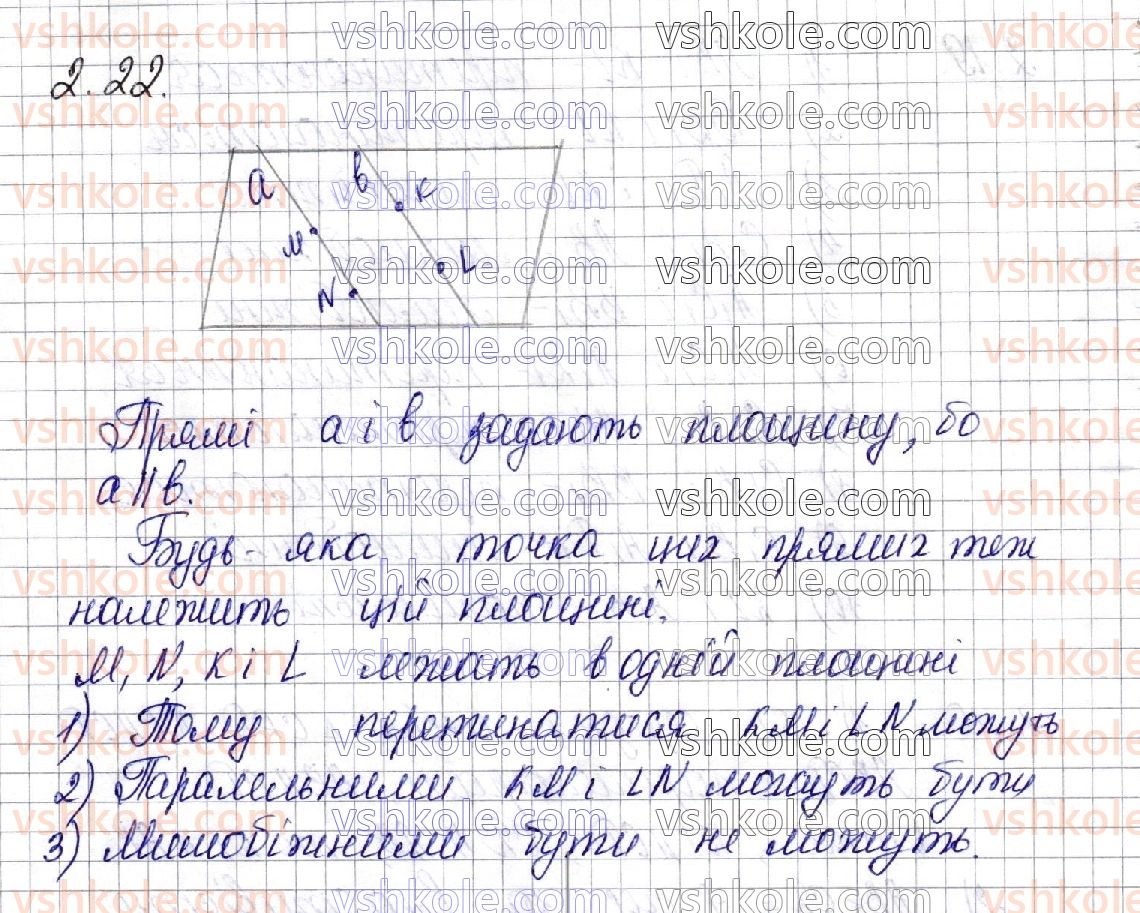 2.22.
a
в
K
M
L
N
Прямі a і в задають площину, бо
a||в.
Будь-яка точка цих прямих теж
належить цій площині.
M, N, K і L лежать в одній площині
1) Тому перетинатися KM і LN можуть
2) Паралельними KM і LN можуть бути
3) Мимобіжними бути не можуть.